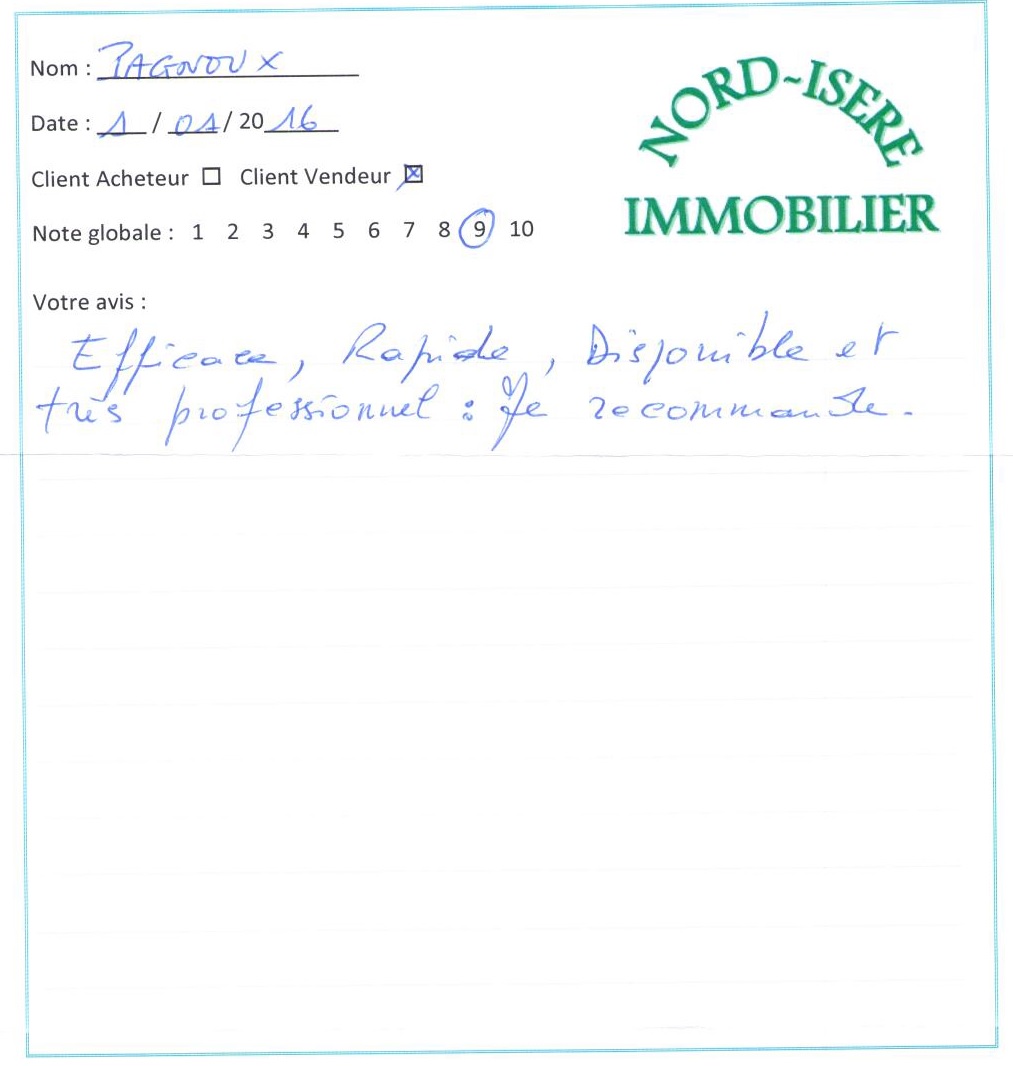 Nom : PAGNOUX
Date : 1 / 01 / 20 16
Client Acheteur ☐ Client Vendeur ☒
Note globale : 1 2 3 4 5 6 7 8 9 10
NORD-ISERE
IMMOBILIER
Votre avis :
Efficace, Rapide, Disponible et
très professionnel : Je recommande.